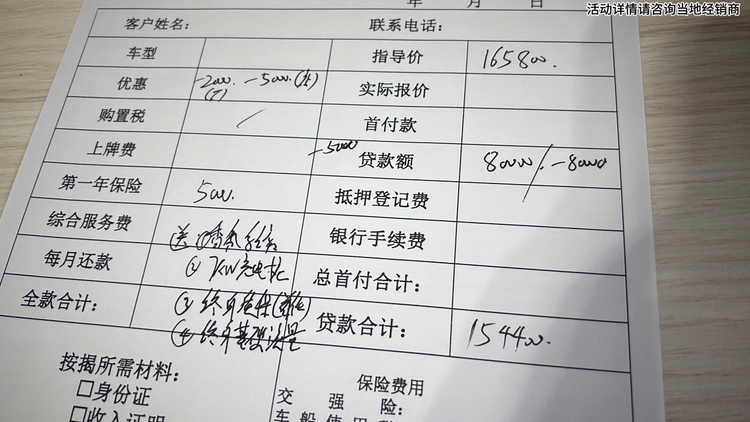 活动详情请咨询当地经销商
年 月 日
客户姓名： 联系电话：
车型 指导价 165800.
优惠 -2000. -5000. 实际报价
购置税 / 首付款
上牌费 -5000 贷款额 80000/-8000
第一年保险 5000. 抵押登记费
综合服务费 银行手续费
每月还款 送 ② 7KW充电桩 总首付合计：
全款合计： ③ 终身质保 贷款合计： 154400.
④ 终身基础流量
按揭所需材料： 保险费用
□身份证 交强险：
□收入证明 车船使用税